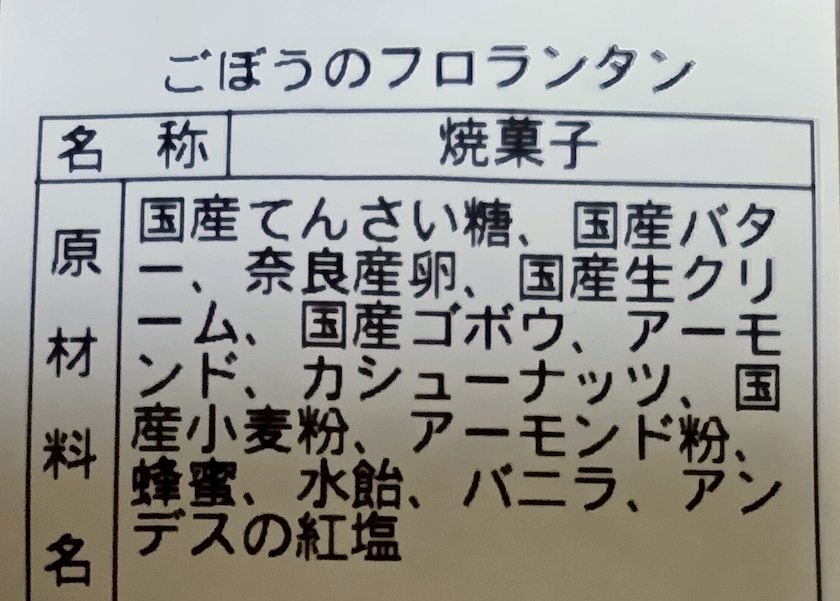 ごぼうのフロランタン
名 称 焼菓子
原材料名
国産てんさい糖、国産バタ
ー、奈良産卵、国産生クリ
ーム、国産ゴボウ、アーモ
ンド、カシューナッツ、国
産小麦粉、アーモンド粉、
蜂蜜、水飴、バニラ、アン
デスの紅塩